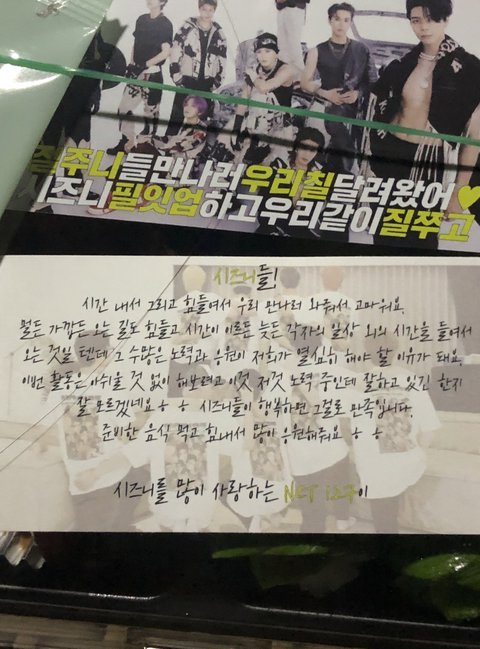 질주니들만나러우리칠달려왔어
시즈니필잇업하고우리같이질쭈고
시즈니들!
시간 내서 그리고 힘들여서 우리 만나러 와줘서 고마워요.
멀든 가깝든 오는 길도 힘들고 시간이 이르든 늦든 각자의 일상 외의 시간을 들여서
오는 것일 텐데 그 수많은 노력과 응원이 저희가 열심히 해야 할 이유가 돼요.
이번 활동은 아쉬울 것 없이 해보려고 이것 저것 노력 중인데 잘하고 있긴 한지
잘 모르겠네요 ㅎㅎ 시즈니들이 행복하면 그걸로 만족입니다.
준비한 음식 먹고 힘내서 많이 응원해줘요 ㅎㅎ
시즈니들 많이 사랑하는 NCT 127이